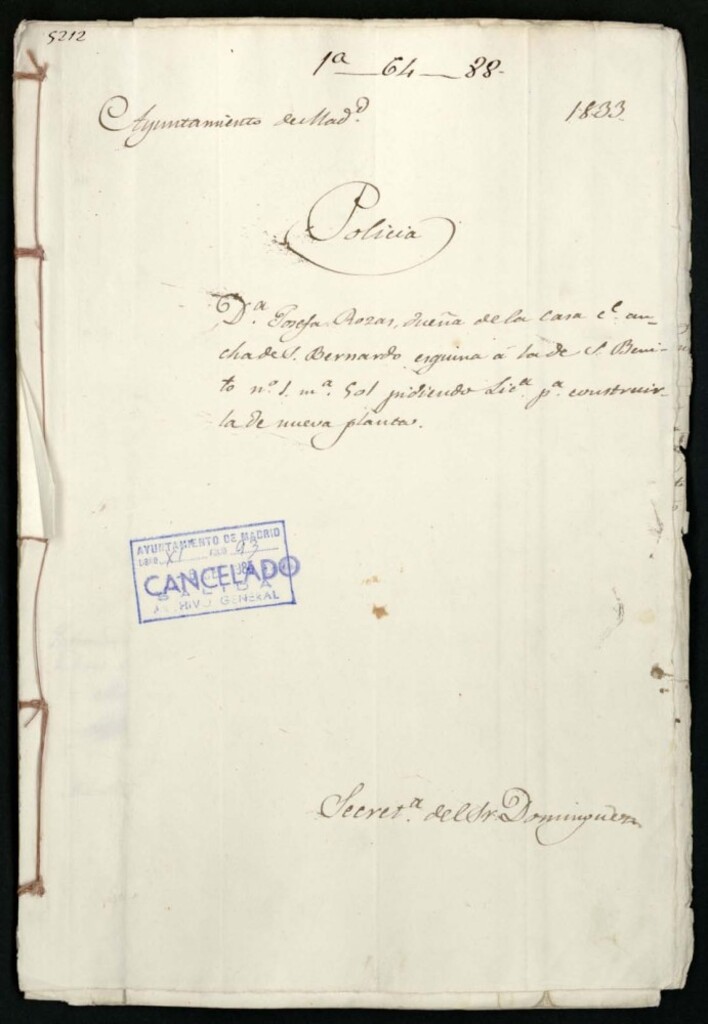 5212
1ª—64—88.
Ayuntamiento de Mad.d
1833.
Policia
D.ª Josefa Rozas, dueña de la casa c.e an-
cha de S. Bernardo esquina á la de S. Beni-
to nº 1. m.ª 501 pidiendo Lic.ª p.ª construir-
la de nueva planta.
AYUNTAMIENTO DE MADRID
XI 93
CANCELADO
SALIDA
ARCHIVO GENERAL
Secret.ª del Sr. Dominguez